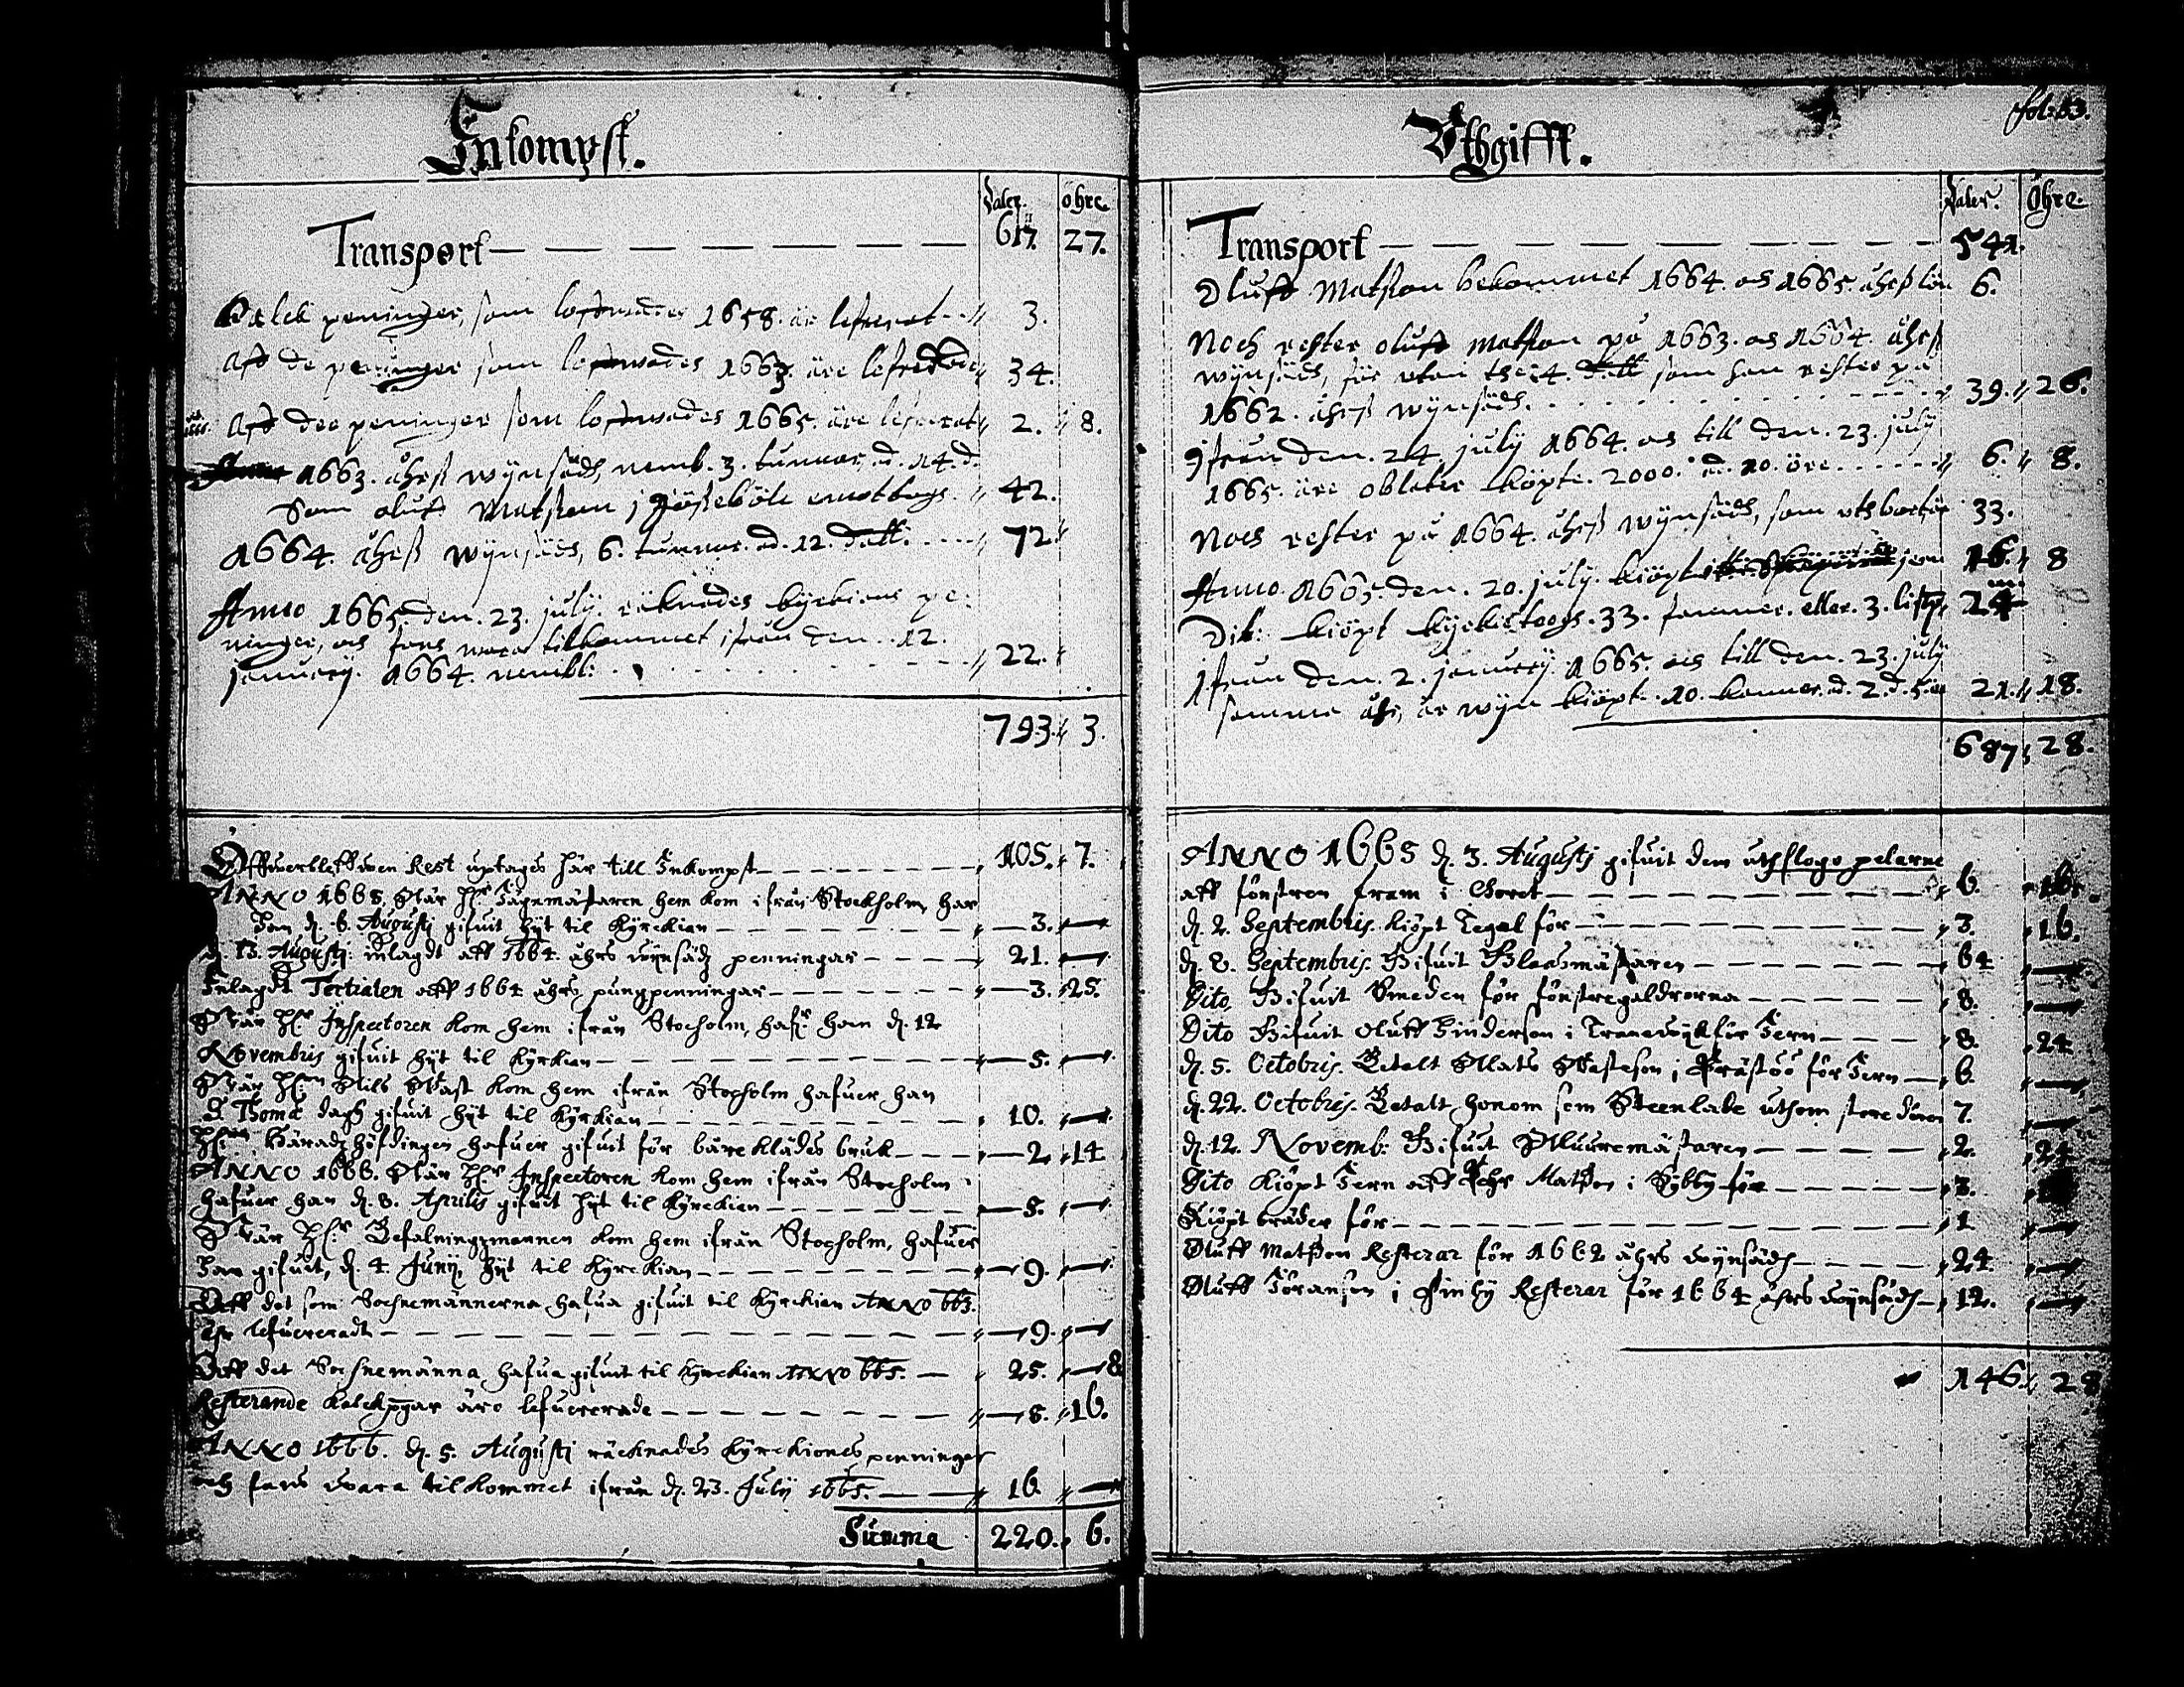 Inkompst.
Daler. Öhre.
Transport 617. 27.
Kalck peninger, som lofwades 1658. är lefrerat 3.
Aff de peninger som lofwades 1663. äre lefrerade 34.
Aff dee peninger som lofwades 1665. äre lefrerat 2. 8.
1663. åhrß wijnsädh, nemb. 3. tunnor, ad. 14. d.
Som oluff Matßon j emottogh. 42.
1664. åhrß wijnsädh, 6. tunnor. ad. 12. dall. 72
Anno 1665. den. 23. july. räknades kyrkions pe:
ninger, och fans wara tilkommet ifrån den. 12.
january. 1664. nembl: 22.
793. 3.
Öffwerbleffwen Rest uptages här till Inkompst 105. 7.
ANNO 1665. När Hr Jägmästaren hem kom ifrån Stockholm, har
han d. 6. Augusti gifuit hijt til Kyrckian 3.
d. 13. Augusti: inlagdt aff 1664 åhrs wijnsädz penningar 21.
Inlagdt Tertialen aff 1664 åhrs pungpenningar 3. 25.
När Hr Inspectoren kom hem ifrån Stocholm, hafr han d. 12
Novembris gifuit hijt til Kyrkian 5.
När Nils kom hem ifrån Stocholm hafuer han
S. Thomæ dagh gifuit hijt til Kyrkian 10.
Häradzhöfdingen hafuer gifuit för båreklädes bruk 2 14
ANNO 1666. När Hr Inspectoren kom hem ifrån Stocholm
hafuer han d. 8. Aprilis gifuit hijt til Kyrckian 5.
När Hr Befalningzmannen kom hem ifrån Stocholm, hafuer
han gifuit, d. 4 Junij, hijt til Kyrckian 9.
Aff det som Sochnemännerna hafua gifuit til Kyrckian ANNO 663.
ähr lefuereradt 9.
Aff det Sochnemänna hafua gifuit til Kyrckian ANNO 665. 25. 8
Resterande Kalckpgar äro lefuererade 8. 16.
ANNO 1666. d. 5. Augusti räcknades Kyrckiones penningar
och fans wara tilkommet ifrån d. 23. July 1665. 16
Summa 220. 6.
Vthgifft.
fol: 83.
Daler. Öhre.
Transport 541.
Oluff Matßon bekommet 1664. och 1665. åhrß lön 6.
Noch rester oluff Matßon på 1663. och 1664. åhrß
wijnsädh, för utan the 24. dall som han rester på
1662. åhrß wijnsädh. 39. 26.
Ifrån den. 24. july 1664. och till den. 23. july
1665. äre oblater köpte. 2000. ad. 10. öre. 6. 8.
Noch rester på 1664. åhrß wijnsädh, som 33.
Anno. 1665. den. 20. july. kiöpt 16. 8
Dito kiöpt 33. eller. 3. 24
Ifrån den. 2. january. 1665. och till den. 23. july
samma åhr, är wijn kiöpt. 10. kannor. ad. 2. d. 5. ör 21. 18.
687. 28.
ANNO 1665 d. 3. Augustj gifuit dem uthslogo pelarne
aff fönstren fram i Choret 6. 16.
d. 2. Septembris. kiöpt Tegel för 3. 16.
d. 8. Septembris. Gifuit Glaasmästaren 64
Dito, Gifuit Smeden för fönstregaldrorna 8.
Dito Gifuit Oluff Hinderson i för Jern 8. 24
d. 5. Octobris. Betalt Mats i för Jern 6.
d. 22. Octobris. Betalt honom som Steenlade uthom store dören 7.
d. 12. Novemb: Gifuit Muuremästaren 2. 24
Dito kiöpt Jern aff Pehr Matßon i för 3.
Kiöpt bräder för 1
Oluff Matßon Resterar för 1662 åhrs wijnsädh 24
Oluff Göranson i Finby Resterar för 1664 åhrs wijnsädh 12.
146. 28